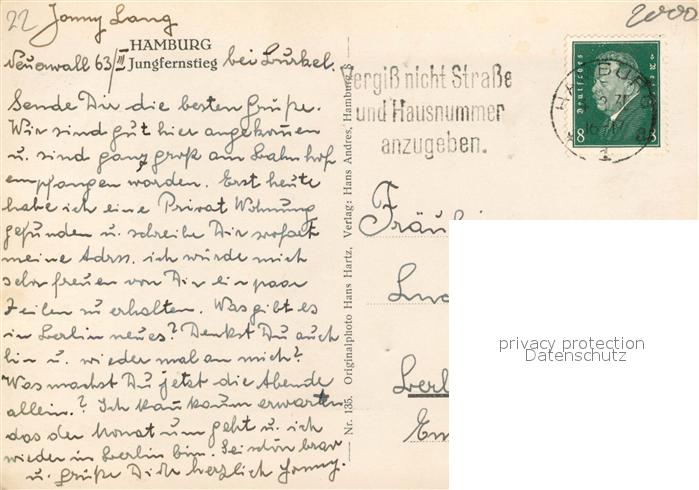 22 Jonny Lang
2000
HAMBURG
Jungfernstieg
Neuerwall 63/III bei Burkel.
Sende Dir die besten Grüße.
Wir sind gut hier angekommen
u. sind ganz groß am Bahnhof
empfangen worden. Erst heute
habe ich eine Privat Wohnung
gefunden u. schreibe Dir sofort
meine Adrss. ich würde mich
sehr freuen von Dir ein paar
Zeilen zu erhalten. Was gibt es
in Berlin neues? Denkst Du auch
hin u. wieder mal an mich?
Was machst Du jetzt die Abende
allein.? Ich kann kaum erwarten
das der Monat um geht u. ich
wieder in Berlin bin. Sei schön brav
u. grüße Dich herzlich Jonny.
Nr. 135. Originalphoto Hans Hartz, Verlag: Hans Andres, Hamburg 8
Vergiß nicht Straße
und Hausnummer
anzugeben.
Deutsches Reich
8 8
HAMBURG
1
Fräul
Berl
privacy protection
Datenschutz